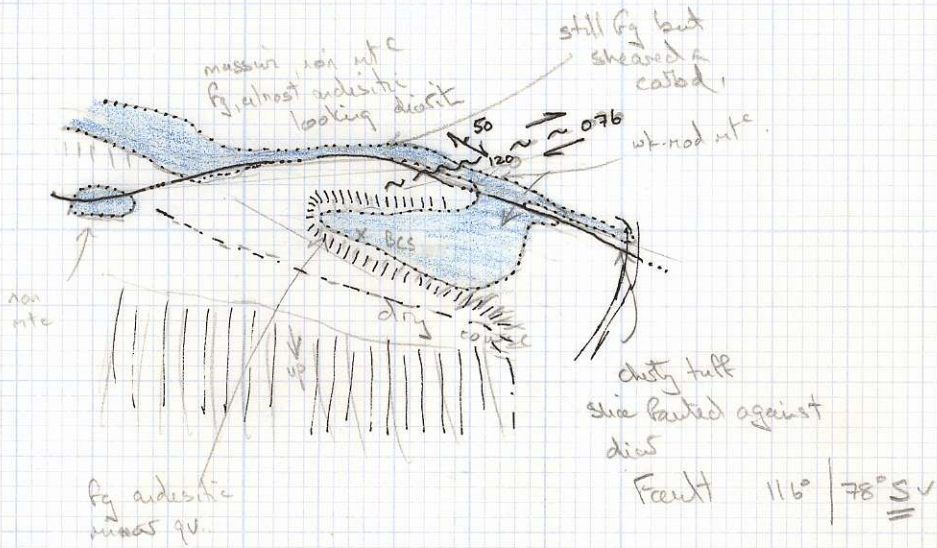 still fg but
sheared &
carbd.
massive, non mt c
fg, almost andesitic
looking diorite
50
076
120
wk-mod mt c.
x BCS
non
mtc
dry
course
up
cherty tuff
slice faulted against
dior
Fault 116° | 78° S
fg andesitic
minor qv.